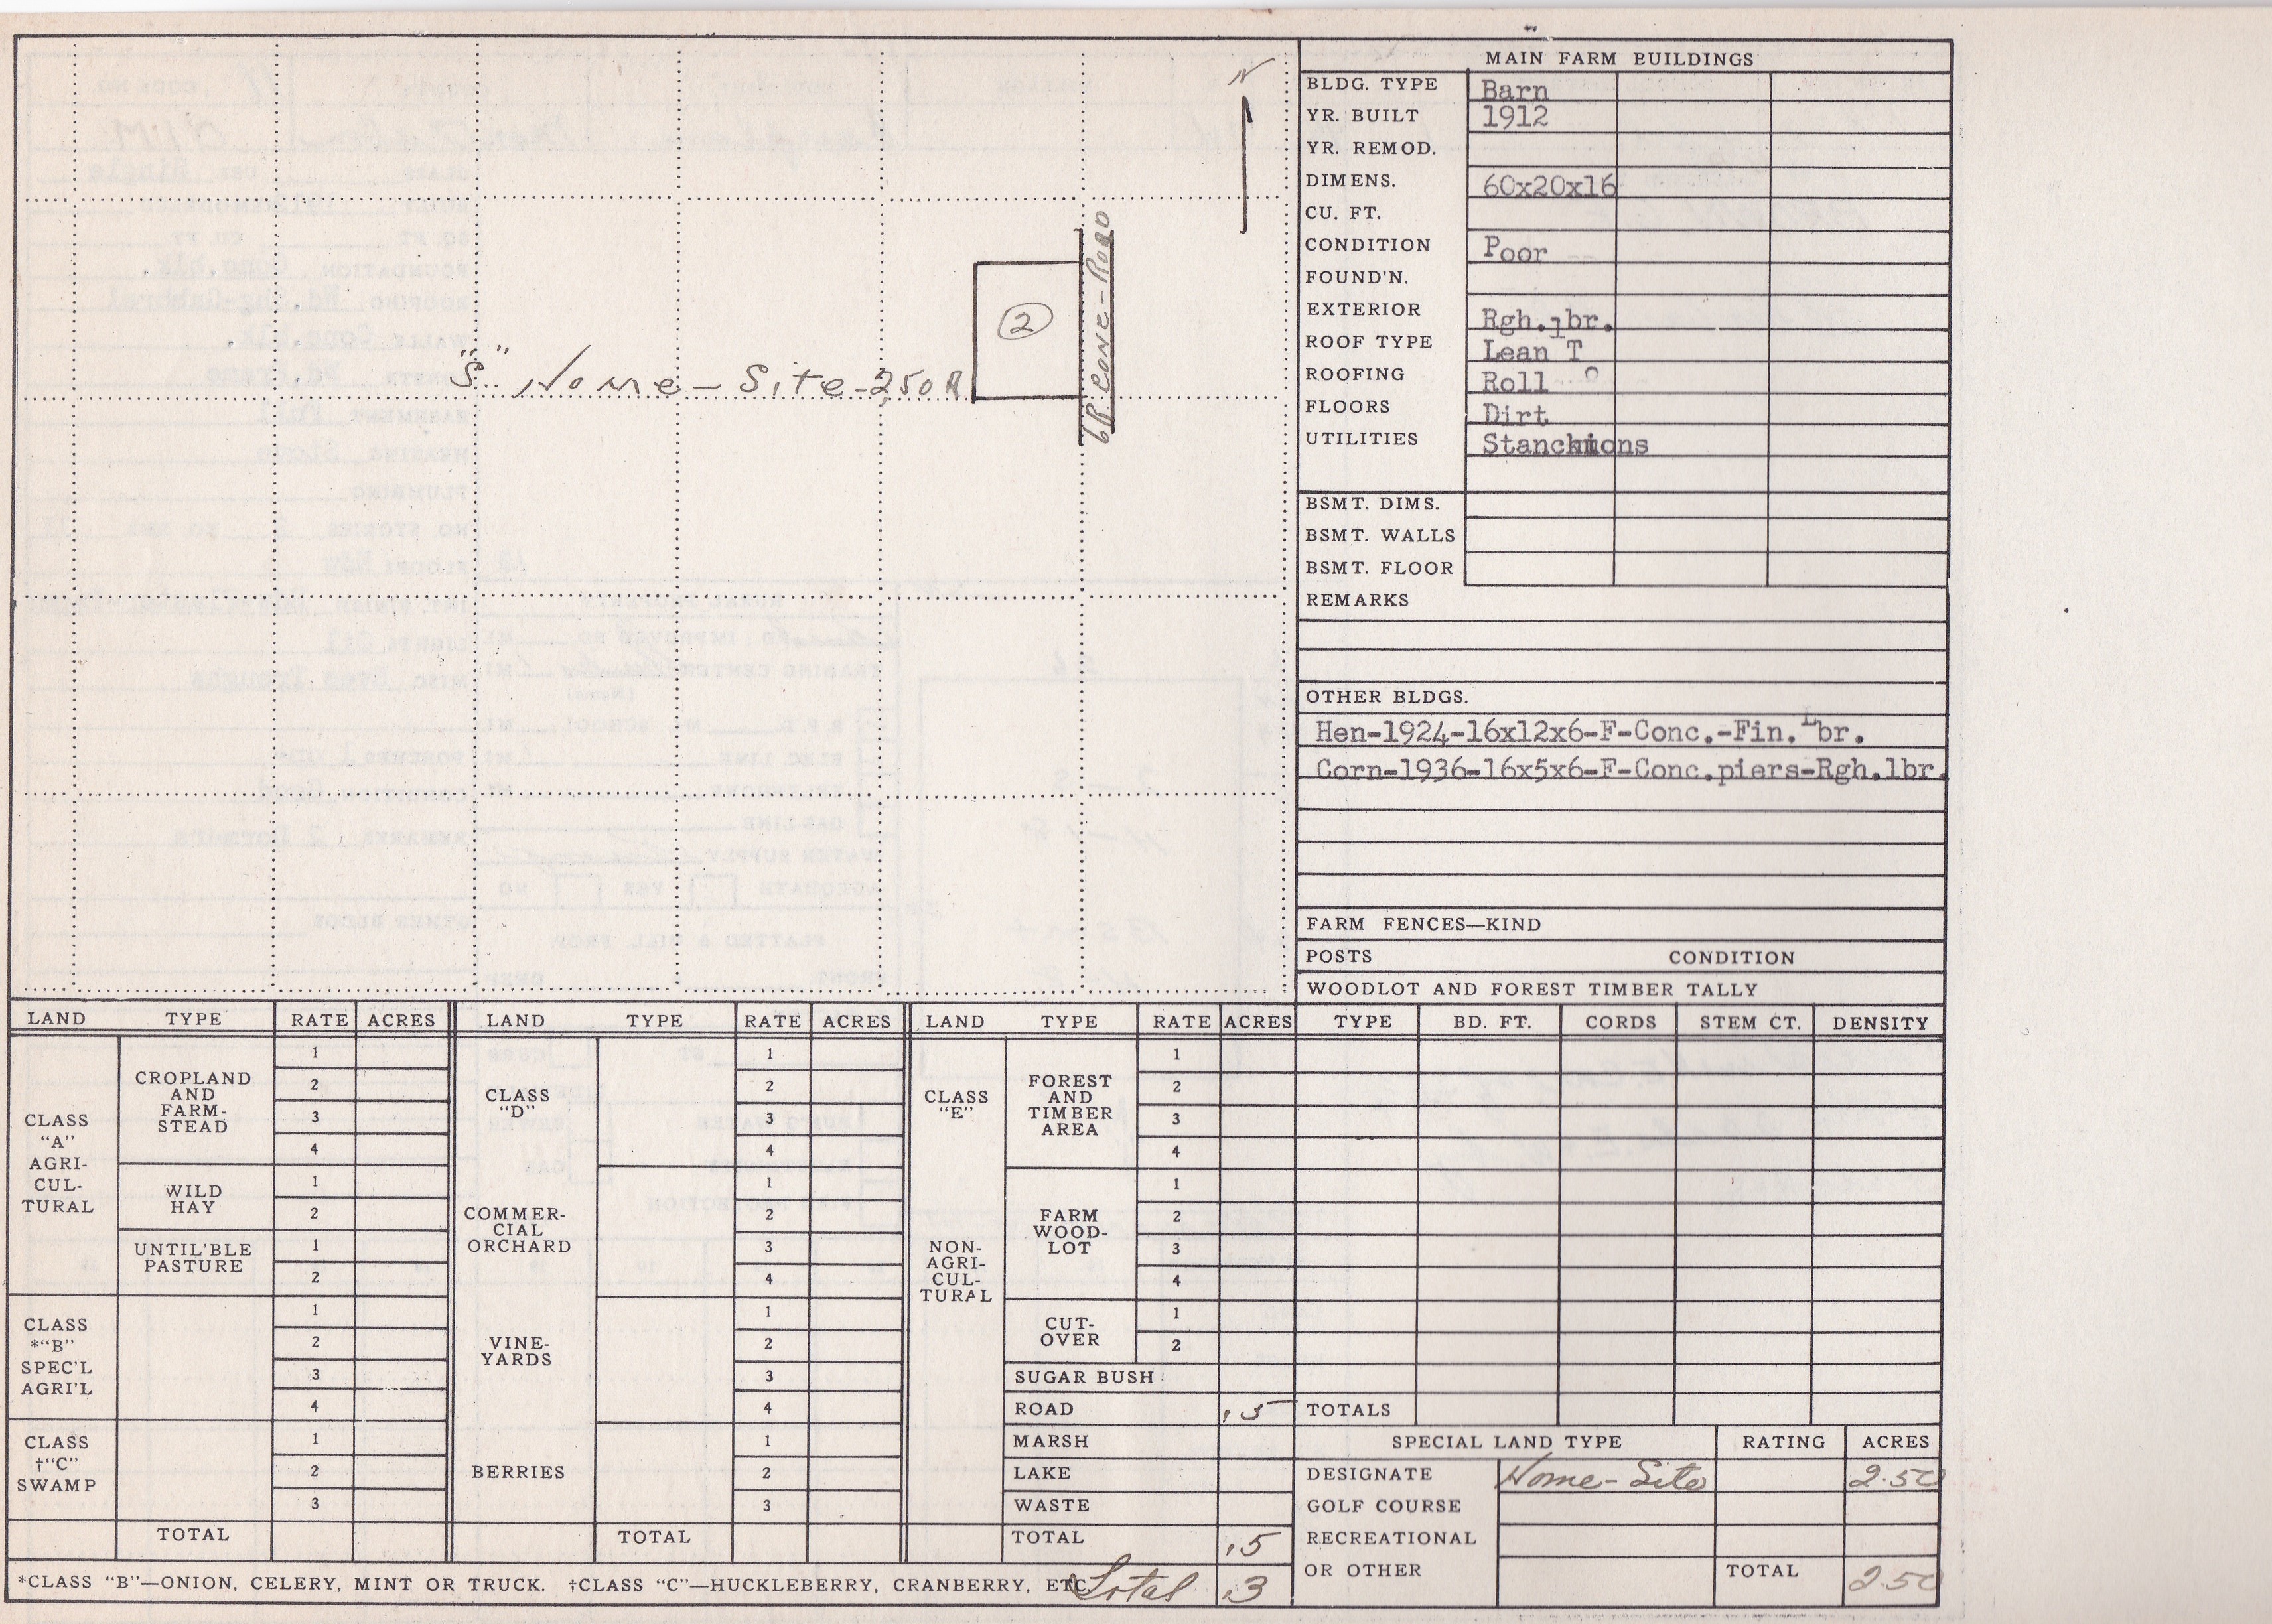 N
②
6R. CONE-ROAD
"S" Home-Site-2,50 A
MAIN FARM BUILDINGS
BLDG. TYPE Barn
YR. BUILT 1912
YR. REMOD.
DIMENS. 60x20x16
CU. FT.
CONDITION Poor
FOUND'N.
EXTERIOR Rgh.lbr.
ROOF TYPE Lean To
ROOFING Roll
FLOORS Dirt
UTILITIES Stanchions
BSMT. DIMS.
BSMT. WALLS
BSMT. FLOOR
REMARKS
OTHER BLDGS.
Hen-1924-16x12x6-F-Conc.-Fin.Lbr.
Corn-1936-16x5x6-F-Conc.piers-Rgh.lbr.
FARM FENCES—KIND
POSTS CONDITION
WOODLOT AND FOREST TIMBER TALLY
TYPE BD. FT. CORDS STEM CT. DENSITY
TOTALS
LAND TYPE RATE ACRES
CLASS
"A"
AGRI-
CUL-
TURAL
CROPLAND
AND
FARM-
STEAD
1
2
3
4
WILD
HAY
1
2
UNTIL'BLE
PASTURE
1
2
CLASS
*"B"
SPEC'L
AGRI'L
1
2
3
4
CLASS
†"C"
SWAMP
1
2
3
TOTAL
LAND TYPE RATE ACRES
CLASS
"D"
COMMER-
CIAL
ORCHARD
VINE-
YARDS
BERRIES
1
2
3
4
1
2
3
4
1
2
3
4
1
2
3
TOTAL
LAND TYPE RATE ACRES
CLASS
"E"
NON-
AGRI-
CUL-
TURAL
FOREST
AND
TIMBER
AREA
1
2
3
4
FARM
WOOD-
LOT
1
2
3
4
CUT-
OVER
1
2
SUGAR BUSH
ROAD .5
MARSH
LAKE
WASTE
TOTAL .5
*CLASS "B"—ONION, CELERY, MINT OR TRUCK. †CLASS "C"—HUCKLEBERRY, CRANBERRY, ETC.
Total .3
SPECIAL LAND TYPE RATING ACRES
DESIGNATE Home-Site 2.50
GOLF COURSE
RECREATIONAL
OR OTHER
TOTAL 2.50